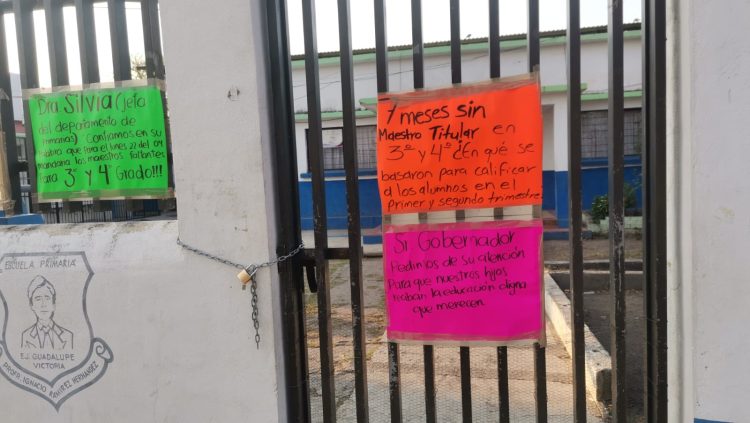 Dra Silvia (Jefa
del departamento de
Primarias) Confiamos en su
palabra que para el lunes 22 del 04
mandaria los maestros faltantes
para 3º y 4º Grado!!!
7 meses sin
Maestro Titular en
3º y 4º ¿En qué se
basaron para calificar
a los alumnos en el
Primer y segundo trimestre
Sr Gobernador
Pedimos de su atención
Para que nuestros hijos
reciban la educación digna
que merecen.
ESCUELA PRIMARIA
E.J. GUADALUPE
VICTORIA
PROFR. IGNACIO RAMIREZ HERNANDEZ